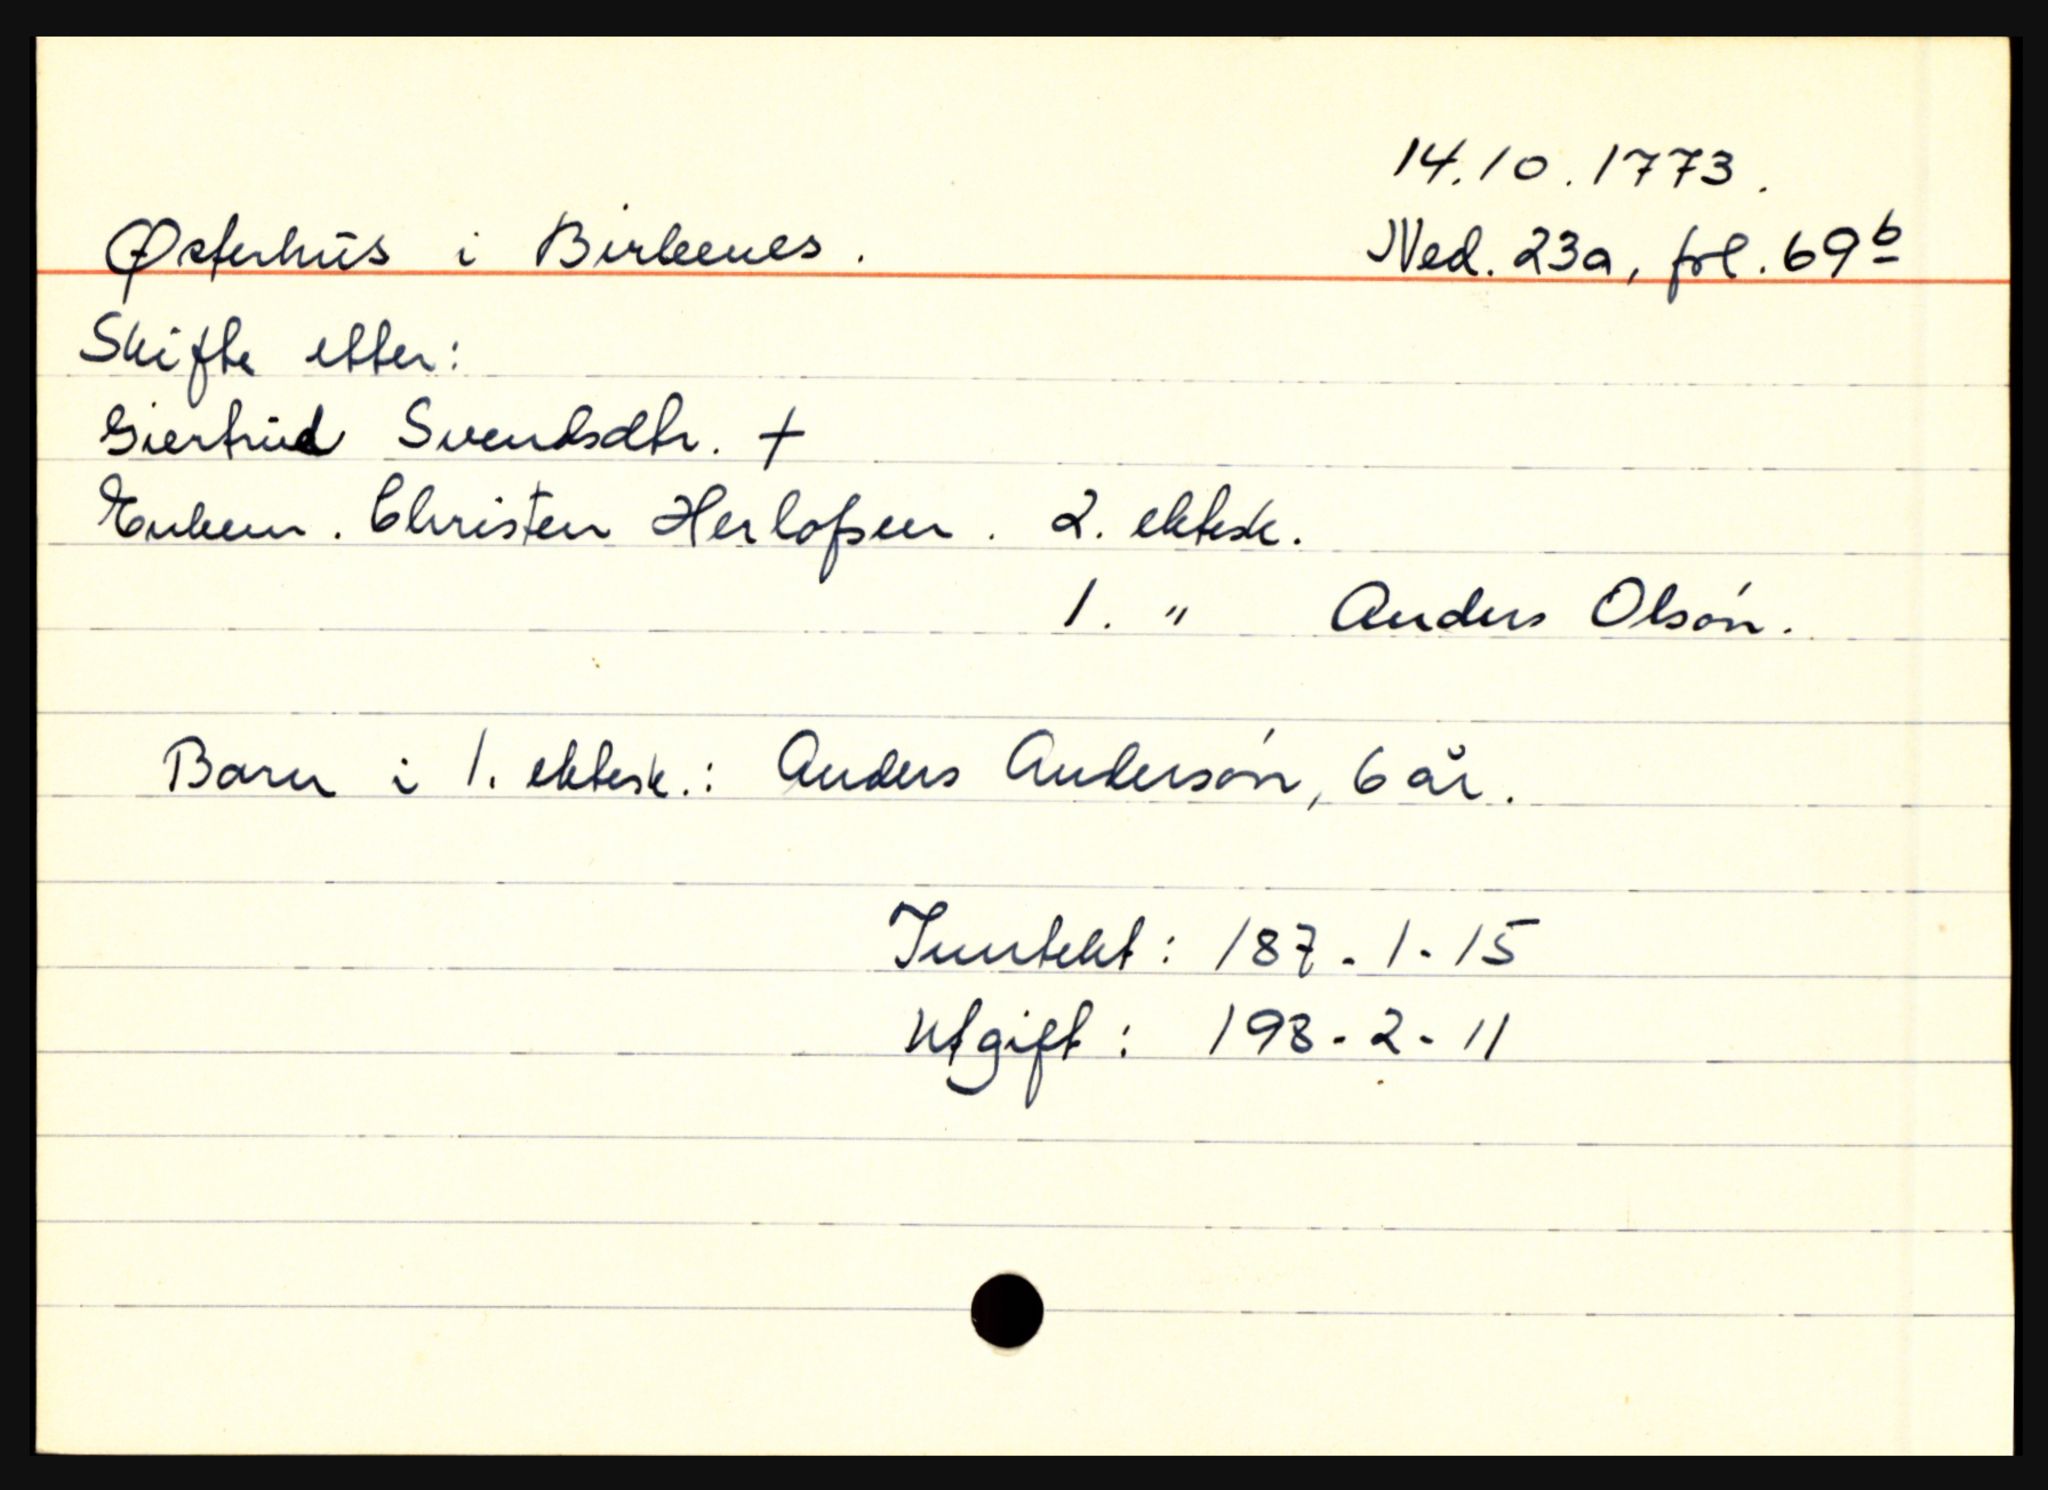 14.10.1773.
Østerhus i Birkenes. Ned. 23a, fol. 69b
Skifte etter:
Giertrud Svendsdtr. +
Enkem. Christen Herlofsen. 2. ektesk.
1. " Anders Olsøn.
Barn i 1. ektesk.: Anders Andersøn, 6 år.
Inntekt: 187-1-15
Utgift: 198-2-11